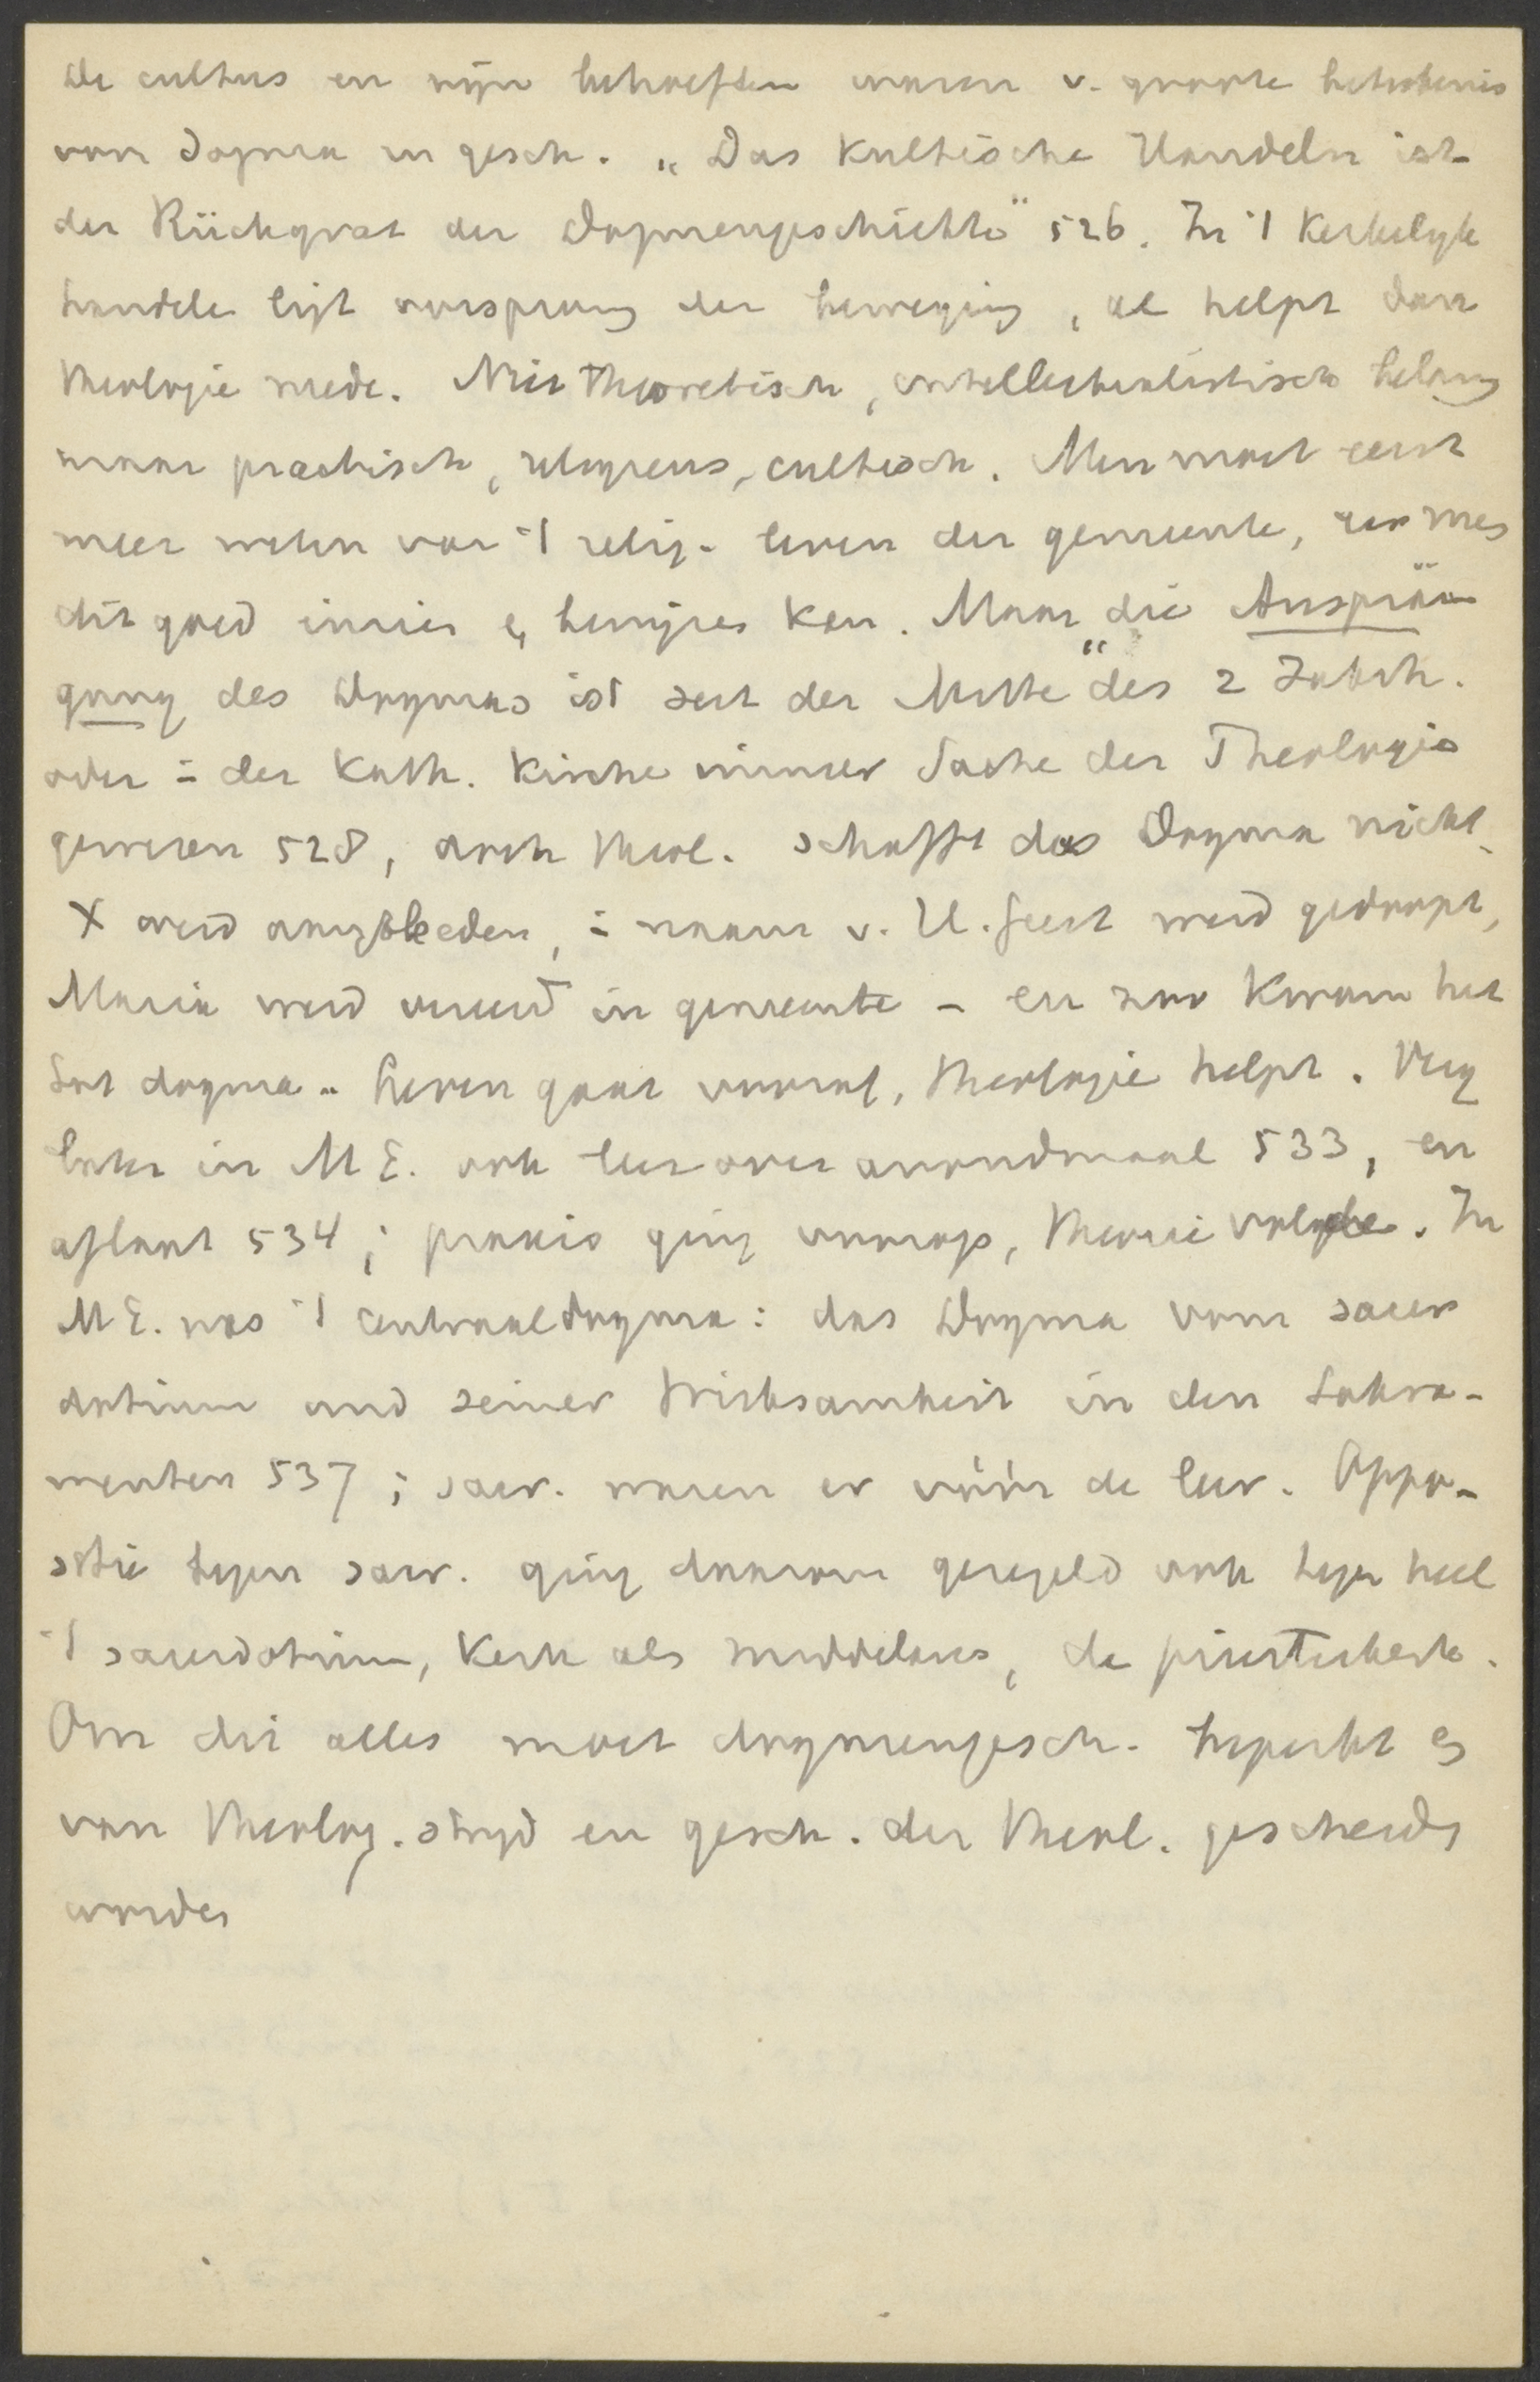 De cultus en zijn behoeften waren v. groote beteekenis
voor dogma en gesch. „Das Kultische Handeln ist
der Rückgrat der Dogmengeschichte" 526. In 't Kerkelyk
handelen ligt oorsprong der beweging, al helpt dan
theologie mede. Niet theoretisch, intellectualistisch belang
maar practisch, religieus, cultisch. Men moet eerst
meer weten van 't relig. leven der gemeente, eer men
dit goed inzien & bewijzen kan. Maar „die Ausprä-
gung des Dogmas ist seit der Mitte" des 2 Jahrh.
oder = der Kath. Kirche immer Sache der Theologie
gewesen 528, doch theol. schafft das Dogma nicht.
X werd aangebeden, = naam v. H. Geest werd gedoopt,
Maria werd vereerd in gemeente - en zoo kwam het
tot dogma. Leven gaat voorop, theologie helpt. Verg
later in M E. ook leer over avondmaal 533, en
aflaat 534; praxis ging voorop, theorie volgde. In
M E. was 't centraaldogma: das Dogma vom sacer
dotium und seiner Wirksamkeit in den Sakra-
menten 537; sacr. waren er vóór de leer. Oppo-
sitie tegen sacr. ging daarom geregeld ook tegen heel
't sacerdotium, Kerk als middelares, de priesterkerk.
Om dit alles moet dogmengesch. beperkt &
van theolog. stryd en gesch. der theol. gescheiden
worden